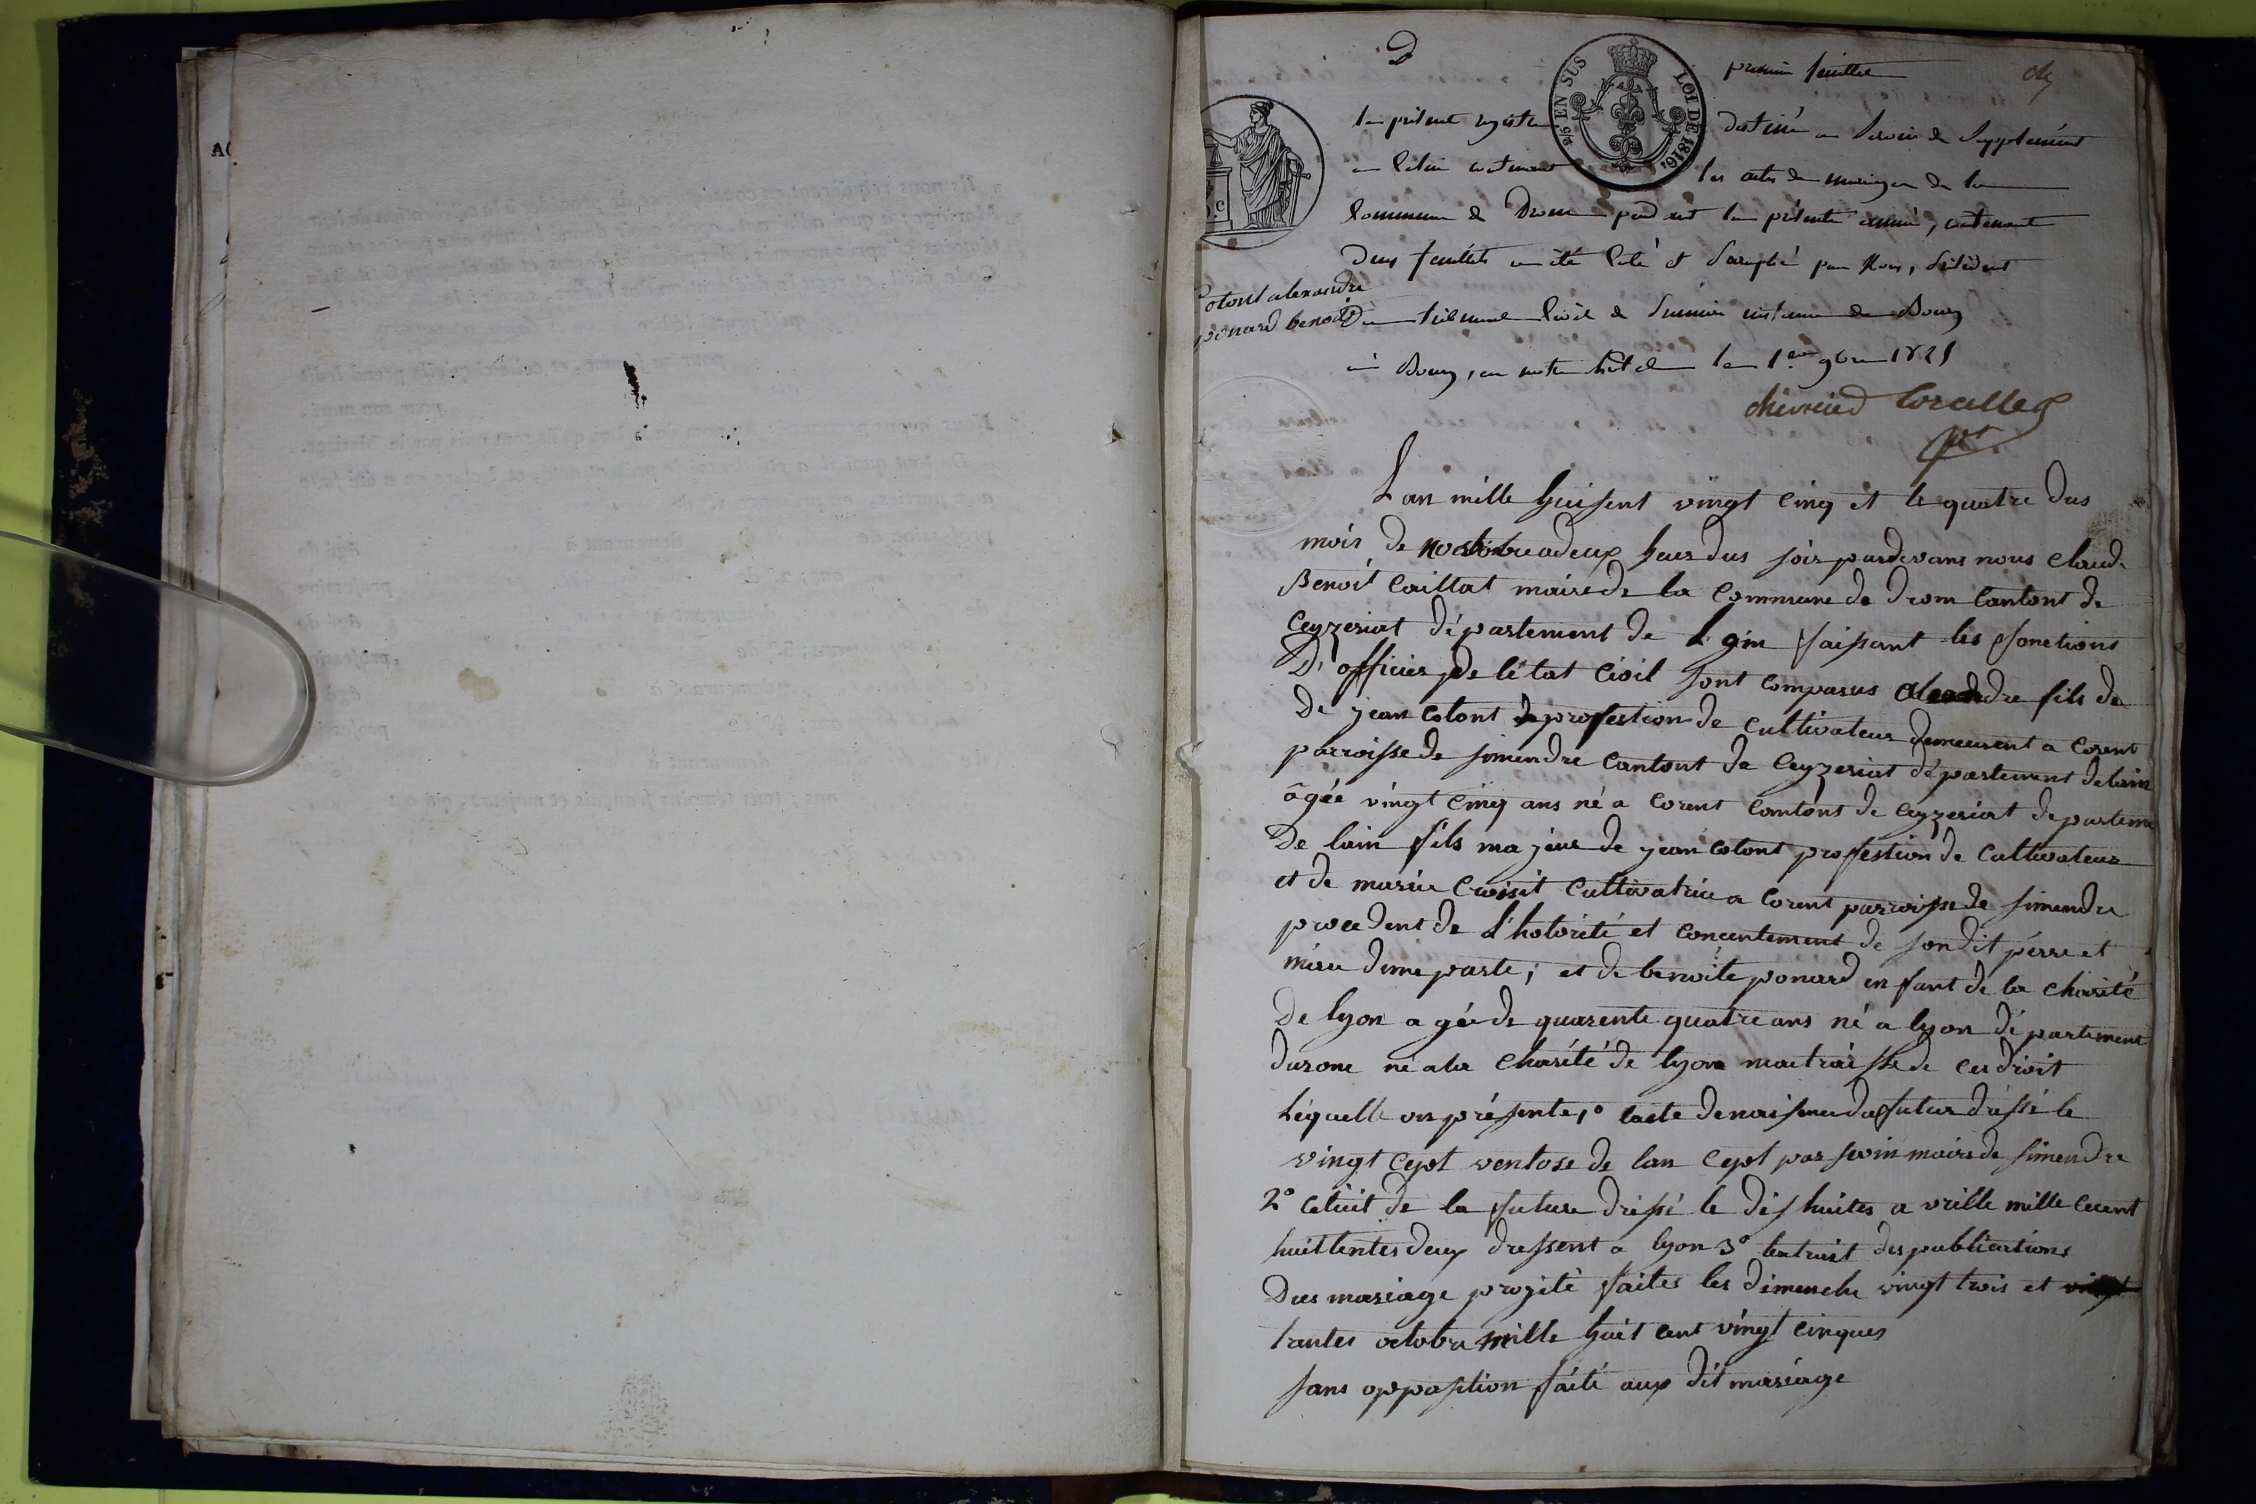 D
premier feuillet
EN SUS LOI DE 1816
le présent registre destiné a servir de Supplément
a celui contenant les actes de mariage de la
Commune de Drom pendant la présente année, contenant
deux feuillets a été Coté et Paraphé par Nous, Président
Colont alexandre
ponard benoite
Du tribunal Civil de Premiere instance de Bourg
à Bourg, en notre hotel le 1er 9bre 1825
Lan mille huisent vingt cinq et le quatre dus
mois de novembre a deux heur dus soir pardevans nous claude
Benoit Caillat maire de la Commune de Drom Cantont de
Ceyzeriat département de l ain faissant les fonctions
D'officier de létat Civil sont comparus alexandre fils de
De jean Colont de profestion de Cultivateur demeurent a Corent
parroisse de simendre Cantont de Ceyzeriat département de lain
âgée vingt cinq ans né a Corent Cantont de Ceyzeriat departeme
De lain fils majeur de jean Colont profestion de Cultivateur
et de mariée Croisit Cultivatrice a Corent parroisse de simendre
procedent de L'hotorité et concentement de son dit perre et
mére dune parte; et de benoite ponard enfant de la charité
De lyon agée de quarente quatre ans né a lyon département
durone né ala charité de lyon maitraisse de ces droit
Léquelle on présente 1° lacte de naissence du futur dressé le
vingt cept ventose de lan cept par maire de simendre
2° celuit de la future dressé le dis huites avrille mille cecent
huittentes deux dressent a lyon 3° lextrait des publications
Dus mariage projeté faites les dimenche vingt trois et
trantes octobre mille huit cent vingt cinques
sans oppostion faité aux dit mariage